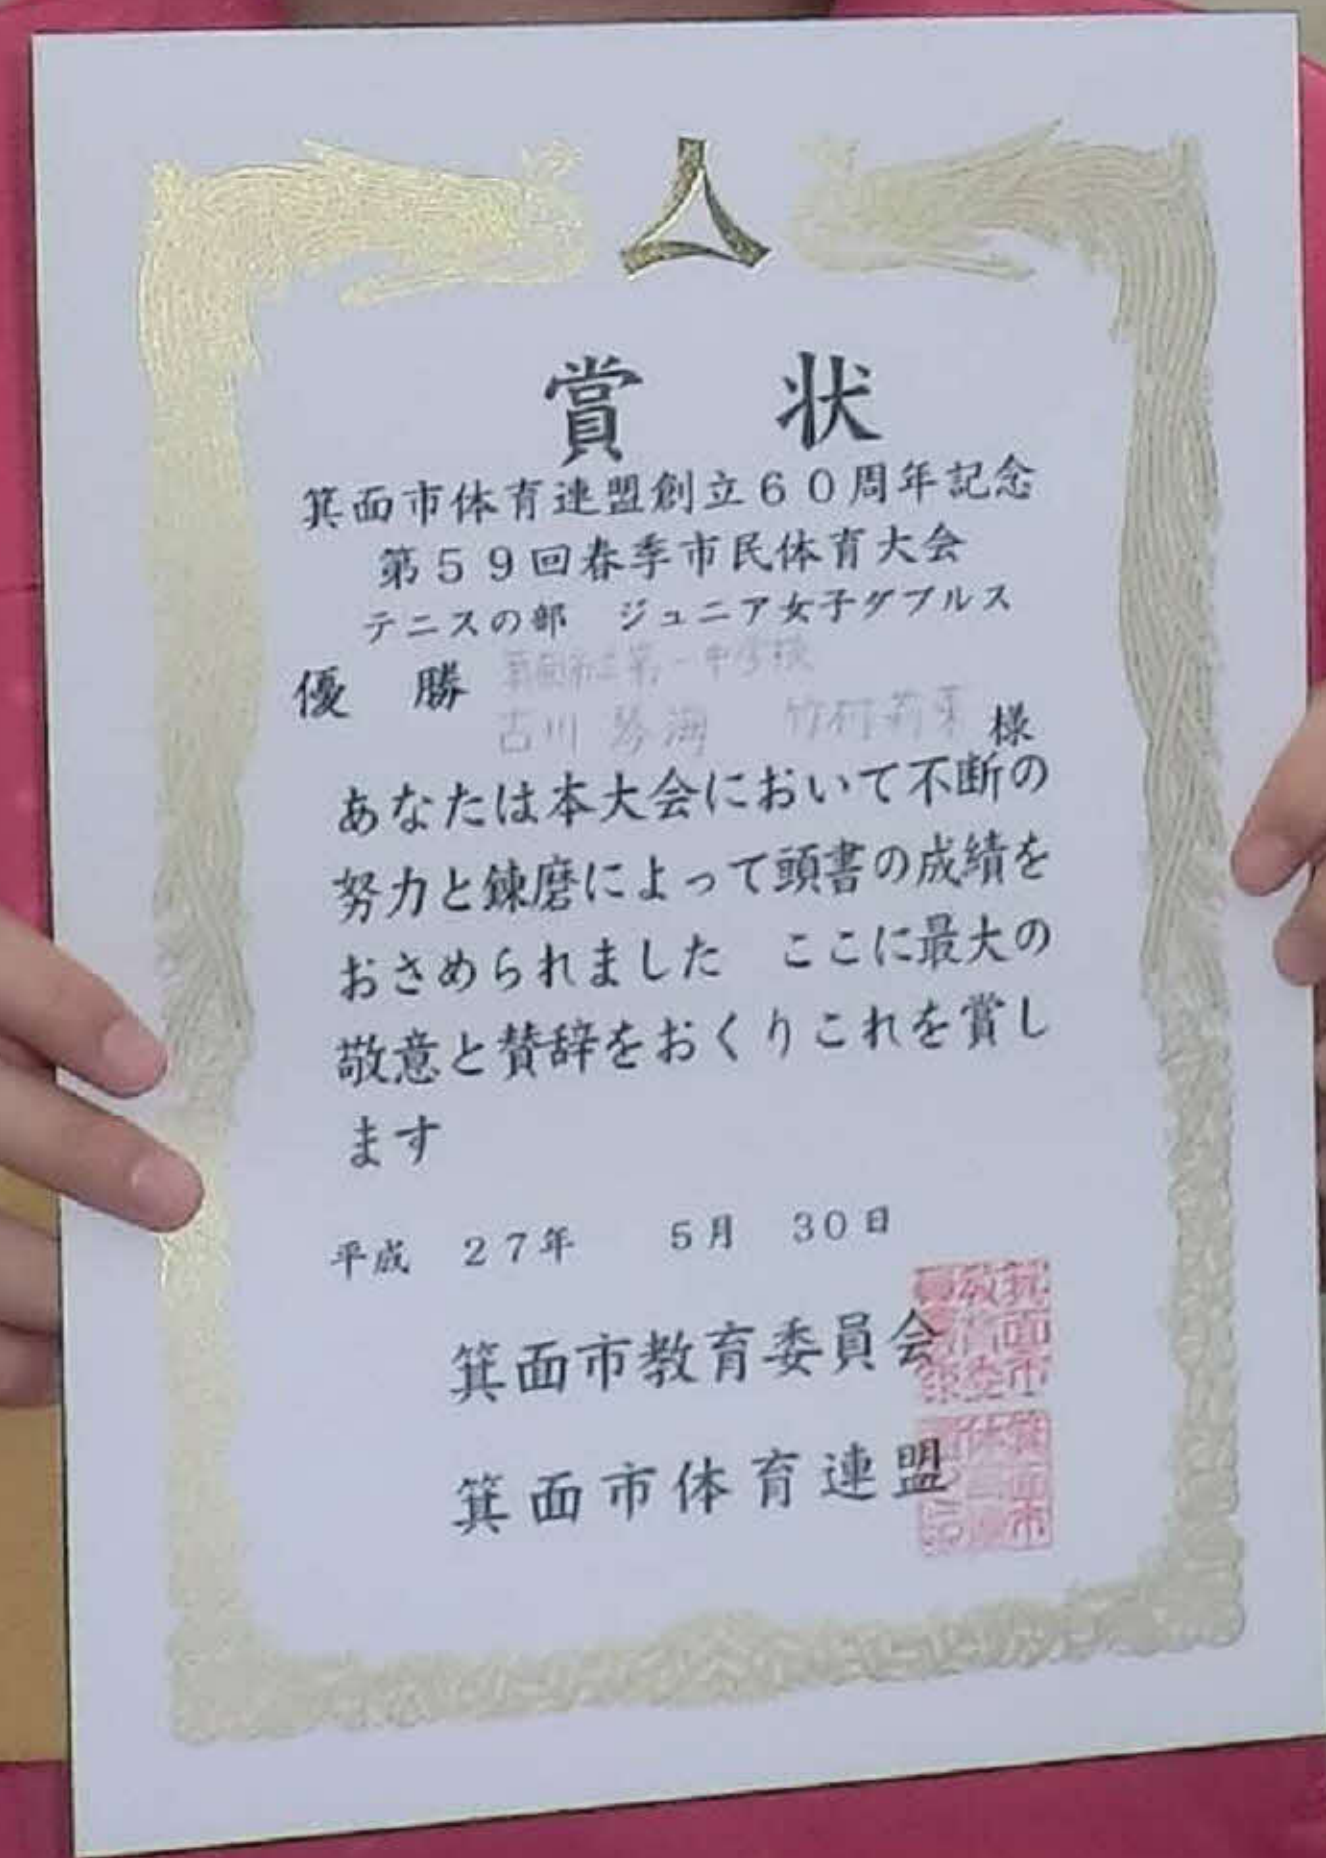 賞　状
箕面市体育連盟創立６０周年記念
第５９回春季市民体育大会
テニスの部　ジュニア女子ダブルス
優　勝
第一中学校
古川　琴海　竹村　様
あなたは本大会において不断の
努力と錬磨によって頭書の成績を
おさめられました　ここに最大の
敬意と賛辞をおくりこれを賞し
ます
平成　２７年　５月　３０日
箕面市教育委員会
箕面市体育連盟